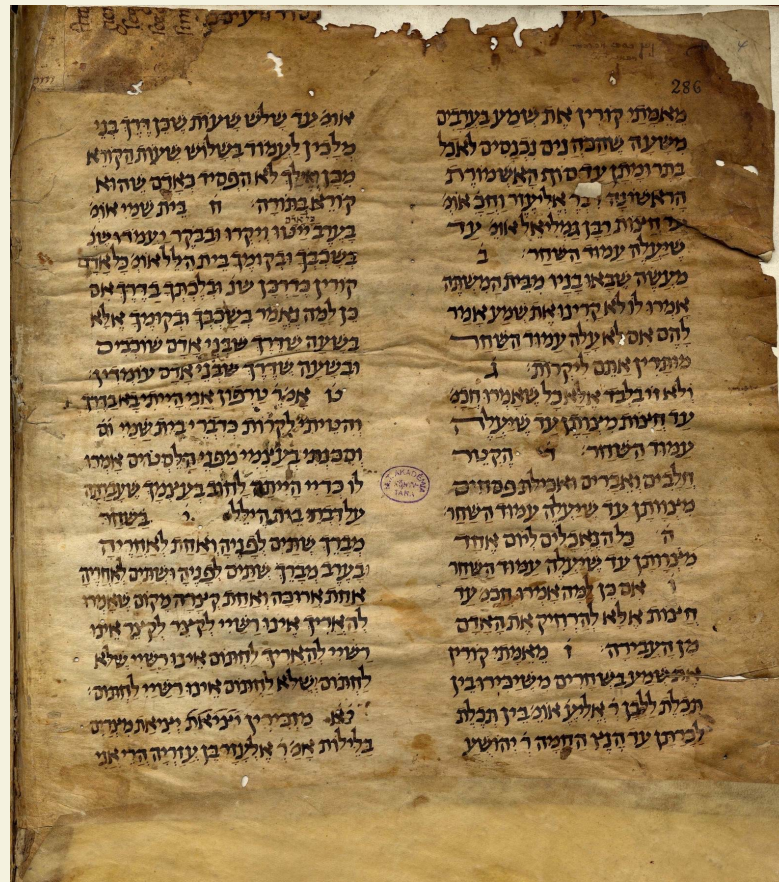 286
מאמתי קורין את שמע בערבים
משעה שהכהנים נכנסים לאכל
בתרומתן עד סוף האשמורת
הראשונה דבר אליעזר וחכ אומ
עד חצות רבן גמליאל אומ עד
שיעלה עמוד השחר ב
מעשה שבאו בניו מבית המשתה
אמרו לו לא קרינו את שמע אמר
להם אם לא עלה עמוד השחר
מותרין אתם לקרות ג
ולא זו בלבד אלא כל שאמרו חכמ
עד חצות מצותן עד שיעלה
עמוד השחר ד הקטר
חלבים ואברים ואכילת פסחים
מצוותן עד שיעלה עמוד השחר
ה כל הנאכלים ליום אחד
מצוותן עד שיעלה עמוד השחר
אם כן למה אמרו חכמ עד
חצות אלא להרחיק את האדם
מן העבירה ו מאמתי קורין
את שמע בשחרים משיכירו בין
תכלת ללבן ר אליעז אומ בין תכלת
לכרתן עד הנץ החמה ר יהושע
אומ עד שלש שעות שכן דרך בני
מלכין לעמוד בשלוש שעות הקורא
מכן ואילך לא הפסיד כאדם שהוא
קורא בתורה ח בית שמי אומ
בערב ייטו ויקרו ובבקר ועמדו שנ
בשכבך ובקומך בית הלל אומ כל אדם
קורין כדרכן שנ ובלכתך בדרך אם
כן למה נאמר בשכבך ובקומך אלא
בשעה שדרך שבני אדם שוכבים
ובשעה שדרך שבני אדם עומדין
ט אמ ר טרפון אני הייתי בא בדרך
והטיתי לקרות כדברי בית שמי
וסכנתי בעצמי מפני הלסטים אמרו
לו כדיי הייתה לחוב בעצמך שעברתה
על דברי בית הילל י בשחר
מברך שתים לפניה ואחת לאחריה
ובערב מברך שתים לפניה ושתים לאחריה
אחת ארוכה ואחת קצרה מקום שאמרו
להאריך אינו רשיי לקצר לקצר אינו
רשיי להאריך לחתום אינו רשיי שלא
לחתום ושלא לחתום אינו רשיי לחתום
יא מזכירין יציאת מצרים
בלילות אמ ר אלעזר בן עזריה הרי אני
M. T. AKADÉMIA
KÖNYV-
TÁRA